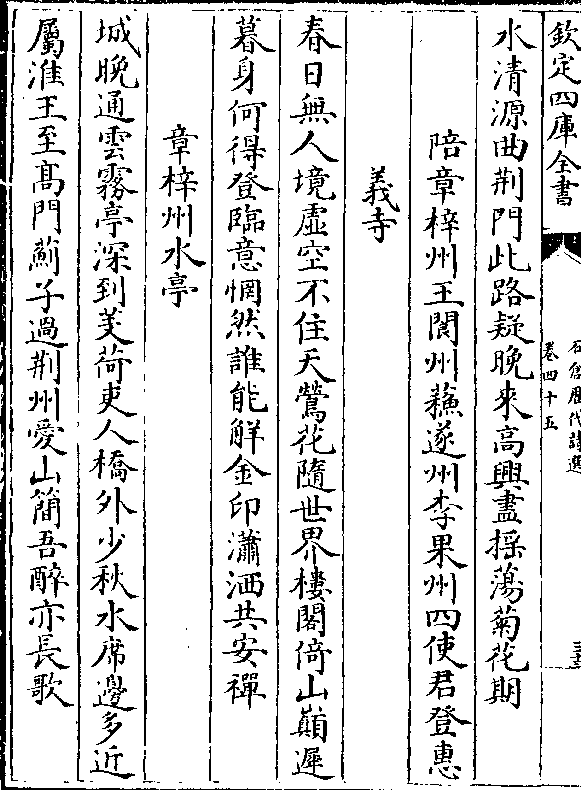 欽定四庫全書
石倉歷代詩選
卷四十五
水清源曲荆門此路疑晚來高興盡搖蕩菊花期
陪章梓州王閬州蘓遂州李果州四使君登惠
義寺
春日無人境虛空不住天鶯花隨世界樓閣倚山巔遲
暮身何得登臨意惘然誰能解金印瀟洒共安禪
章梓州水亭
城晚通雲霧亭深到芰荷吏人橋外少秋水席邊多近
屬淮王至髙門薊子過荆州愛山簡吾醉亦長歌